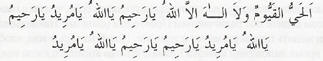 اَلْحَىُّ الْقَيُّومُ وَلَا اِلٰهَ اِلَّا اللهُ يَارَحِيمُ يَااَللهُ يَامُرِيدُ يَارَحِيمُ
يَااَللهُ يَامُرِيدُ يَارَحِيمُ يَارَحِيمُ يَااَللهُ يَامُرِيدُ